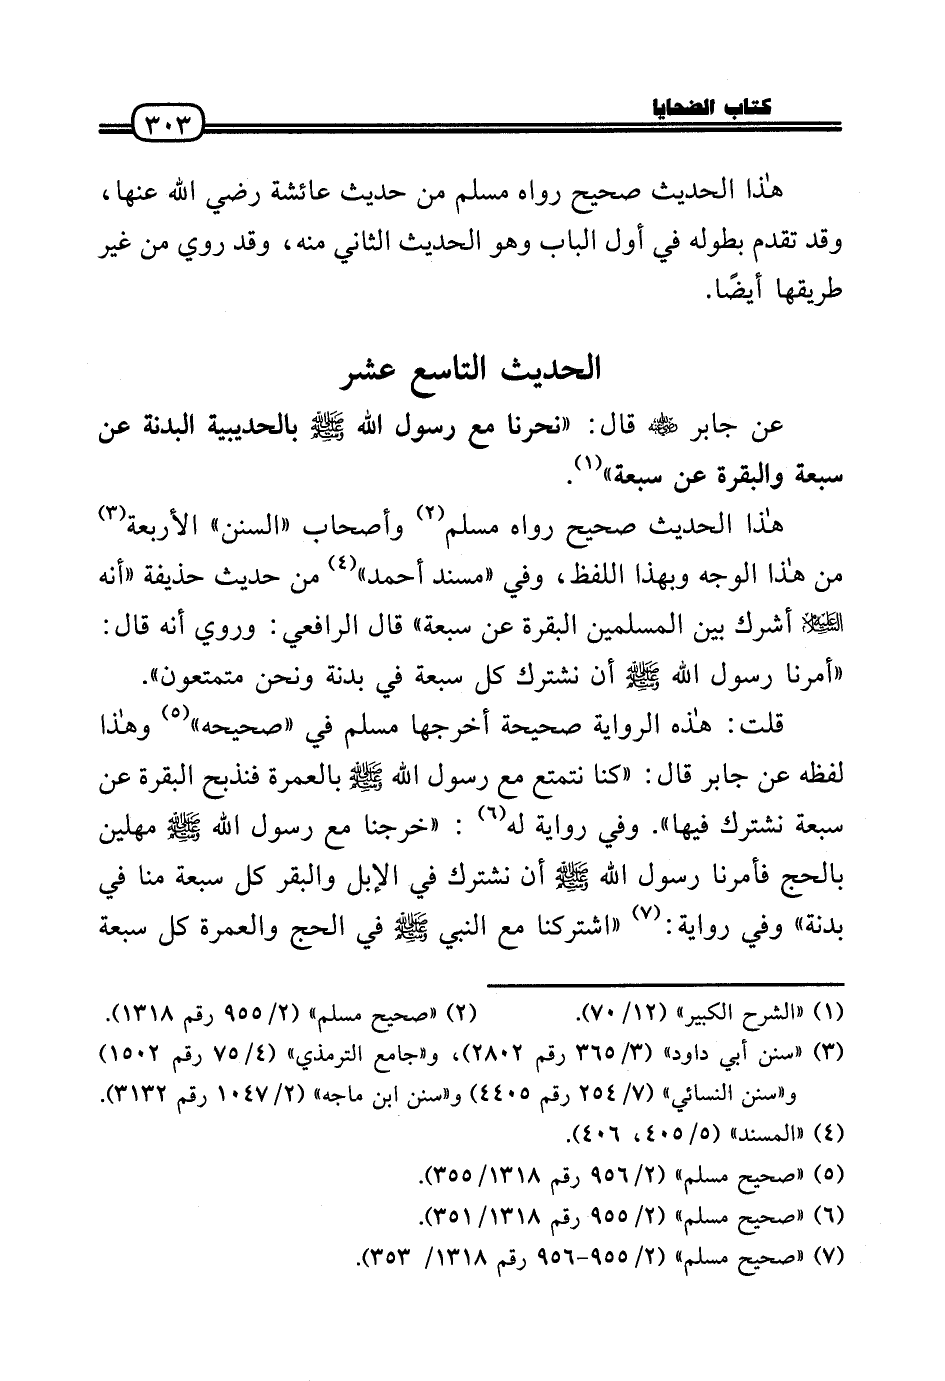 كتاب الضحايا
٣٠٣
هذا الحديث صحيح رواه مسلم من حديث عائشة رضي الله عنها،
وقد تقدم بطوله في أول الباب وهو الحديث الثاني منه، وقد روي من غير
طريقها أيضًا.
الحديث التاسع عشر
عن جابر رضي الله عنه قال: «نحرنا مع رسول الله ﷺ بالحديبية البدنة عن
سبعة والبقرة عن سبعة»(١).
هذا الحديث صحيح رواه مسلم(٢) وأصحاب «السنن» الأربعة(٣)
من هذا الوجه وبهذا اللفظ، وفي «مسند أحمد»(٤) من حديث حذيفة «أنه
عليه السلام أشرك بين المسلمين البقرة عن سبعة» قال الرافعي: وروي أنه قال:
«أمرنا رسول الله ﷺ أن نشترك كل سبعة في بدنة ونحن متمتعون».
قلت: هذه الرواية صحيحة أخرجها مسلم في «صحيحه»(٥) وهذا
لفظه عن جابر قال: «كنا نتمتع مع رسول الله ﷺ بالعمرة فنذبح البقرة عن
سبعة نشترك فيها». وفي رواية له(٦) : «خرجنا مع رسول الله ﷺ مهلين
بالحج فأمرنا رسول الله ﷺ أن نشترك في الإبل والبقر كل سبعة منا في
بدنة» وفي رواية:(٧) «اشتركنا مع النبي ﷺ في الحج والعمرة كل سبعة
(١) «الشرح الكبير» (١٢/ ٧٠). (٢) «صحيح مسلم» (٢/ ٩٥٥ رقم ١٣١٨).
(٣) «سنن أبي داود» (٣/ ٣٦٥ رقم ٢٨٠٢)، و«جامع الترمذي» (٤/ ٧٥ رقم ١٥٠٢)
و«سنن النسائي» (٧/ ٢٥٤ رقم ٤٤٠٥) و«سنن ابن ماجه» (٢/ ١٠٤٧ رقم ٣١٣٢).
(٤) «المسند» (٥/ ٤٠٥، ٤٠٦).
(٥) «صحيح مسلم» (٢/ ٩٥٦ رقم ١٣١٨/ ٣٥٥).
(٦) «صحيح مسلم» (٢/ ٩٥٥ رقم ١٣١٨/ ٣٥١).
(٧) «صحيح مسلم» (٢/ ٩٥٥-٩٥٦ رقم ١٣١٨/ ٣٥٣).